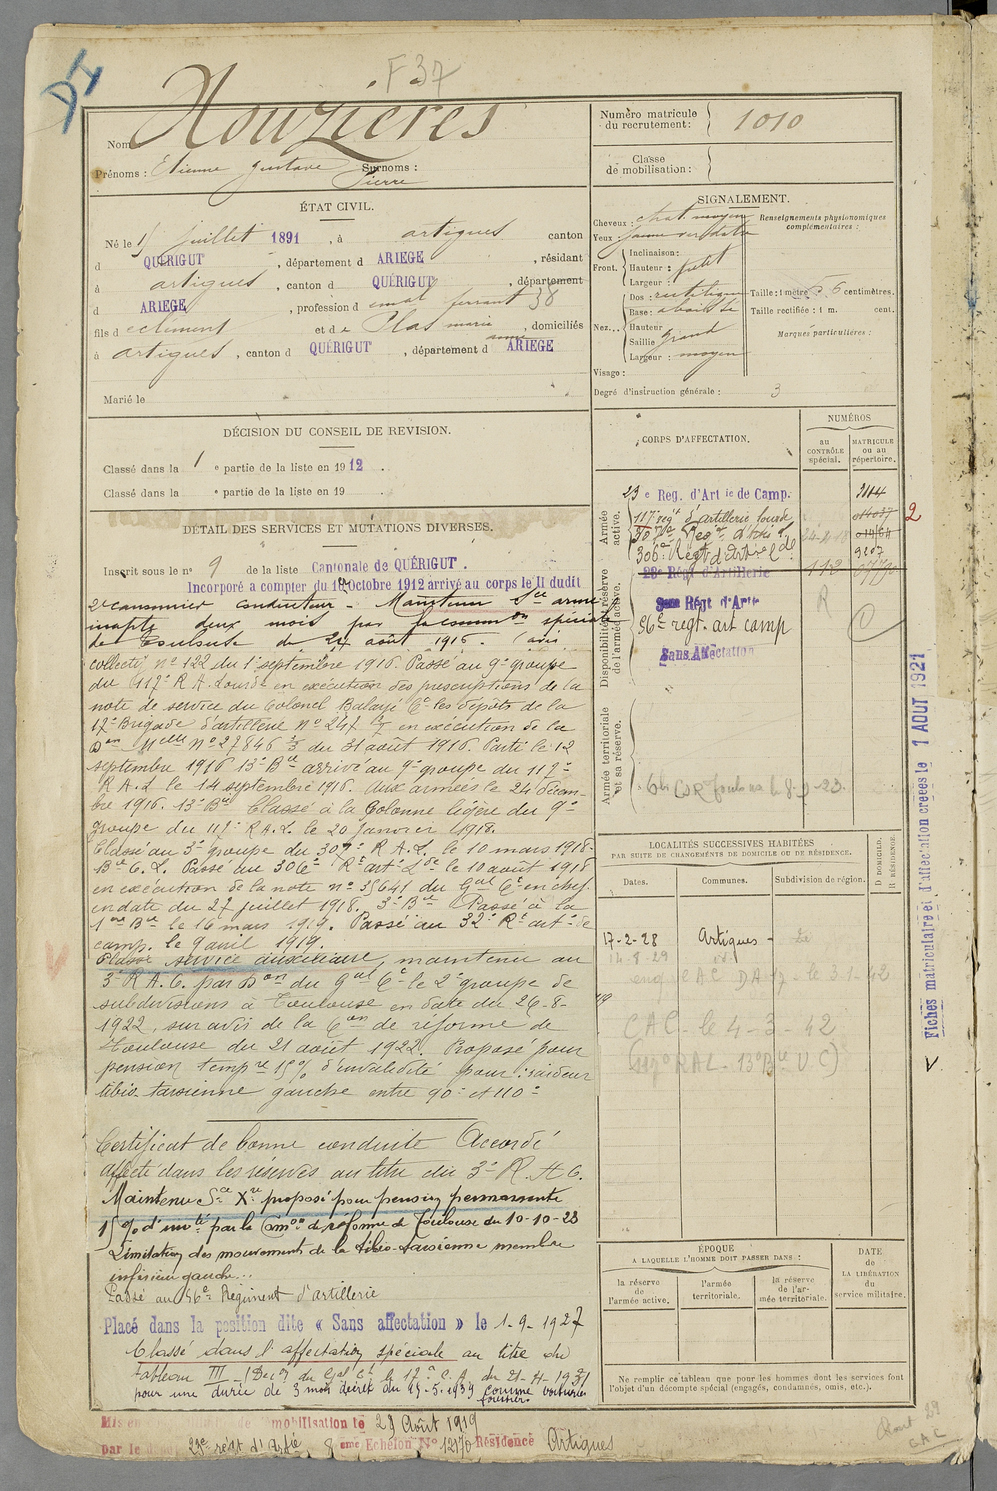 DI
F 37
Nom Nouzières
Prénoms : Etienne Gustave Surnoms :
Pierre
Numéro matricule
du recrutement : 1010
Classe
de mobilisation :
ÉTAT CIVIL.
Né le 15 juillet 1891 , à artigues canton
d QUÉRIGUT , département d ARIEGE , résidant
à artigues , canton d QUÉRIGUT , département
d ARIEGE , profession d emal ferrant 38
fils d e clément et d e Plas marie , domiciliés
anne
à artigues , canton d QUÉRIGUT , département d ARIEGE
Marié le
SIGNALEMENT.
Cheveux : chat moyen
Yeux :
Renseignements physionomiques
complémentaires :
Front.
Inclinaison :
Hauteur : petit
Largeur :
Nez...
Dos : rectiligne
Base : abaissée
Hauteur
Saillie grand
Largeur : moyen
Taille : 1 mètre 6 centimètres.
Taille rectifiée : 1 m. cent.
Marques particulières :
Visage :
Degré d'instruction générale : 3
DÉCISION DU CONSEIL DE REVISION.
Classé dans la 1 e partie de la liste en 1912 .
Classé dans la e partie de la liste en 19 .
DÉTAIL DES SERVICES ET MUTATIONS DIVERSES.
Inscrit sous le n° 9 de la liste Cantonale de QUÉRIGUT .
Incorporé a compter du 10 Octobre 1912 arrivé au corps le li dudit
2e canonnier conducteur - Maintenu Sce armé
inapte deux mois par la comm on spéciale
de Toulouse du 24 août 1916. (avis
collectif n° 122 du 1er septembre 1916. Passé au 9e groupe
du 117e R A. Lourde en exécution des prescriptions de la
note de service du Colonel Balaye Ct les dépôts de la
17e Brigade d'artillerie n° 247 en exécution de la
Don Melle n° 27846 3/3 du 31 août 1916. Parti le 12
septembre 1916 13e Bie arrivé au 9e groupe du 117e
R A. L le 14 septembre 1916. Aux armées le 24 décem-
bre 1916. 13e Bie Classé à la Colonne légère du 9e
groupe du 117e R A. L. le 20 janvier 1918.
Classé au 3e groupe du 307e R A. L. le 10 mars 1918-
Bie C. L. Passé au 306e Rt art Lde le 10 août 1918
en exécution de la note n° 35641 du Gal Ct en chef
en date du 27 juillet 1918. 3e Bie Passé à la
1ère Bie le 16 mars 1919. Passé au 32e Rt art ie de
camp. le 9 avril 1919.
Classé service auxiliaire, maintenu au
3e R A. C. par Don du Gal Ct le 2e groupe de
subdivisions à Toulouse en date du 26-8-
1922, sur avis de la Con de réforme de
Toulouse du 21 août 1922. Proposé pour
pension tempre 15% d'invalidité pour : raideur
tibio-tarsienne gauche entre 90° et 110°
Certificat de bonne conduite Accordé
Affecté dans les réserves au titre du 3e R. A. C.
Maintenu Sce Xre proposé pour pension permanente
15 % d'invté par la Common de réforme de Toulouse du 10-10-23
Limitation des mouvements de la tibio-tarsienne membre
inférieur gauche...
Passé au 56e Régiment d'artillerie
Placé dans la position dite « Sans affectation » le 1-9-1927
Classé dans l'affectation spéciale au titre du
tableau III - (Don du Gal Ct le 17e C. A. du 21-4-1931
pour une durée de 3 mois décret du 15-5-1939 comme voiturier
forestier
mobilisation le 29 Août 1919
par le 23e régt d'Artie 8 eme Echelon N° 12170 Résidence Artigues
CORPS D'AFFECTATION.
NUMÉROS
au
CONTRÔLE
spécial.
MATRICULE
ou au
répertoire.
Armée
active.
23 e Reg. d'Art ie de Camp.
117e regt d'artillerie lourde
307e Regt d'Artie Lde
306e Regt d'Art ie Lde
9207
112
Disponibilité et réserve
de l'armée active.
23e Régt d'Artillerie
3eme Régt d'Artie
56e regt. art camp
Sans Affectation
R
Armée territoriale
et sa réserve.
2
LOCALITÉS SUCCESSIVES HABITÉES
PAR SUITE DE CHANGEMENTS DE DOMICILE OU DE RÉSIDENCE.
Dates.
Communes.
Subdivision de région.
D DOMICILE.
R RÉSIDENCE.
17-2-28 Artigues -
14-8-29 id.
CAC DA 17 - le 3-1-42
CAC - le 4-3-42
(117e RAL - 13e Bie V C)
ÉPOQUE
A LAQUELLE L'HOMME DOIT PASSER DANS :
DATE
de
LA LIBÉRATION
du
service militaire.
la réserve
de
l'armée active.
l'armée
territoriale.
la réserve
de l'ar-
mée territoriale.
Ne remplir ce tableau que pour les hommes dont les services font
l'objet d'un décompte spécial (engagés, condamnés, omis, etc.).
Fiches matriculaire et d'affectation créées le 1 AOUT 1921
V
Août 29
CAC